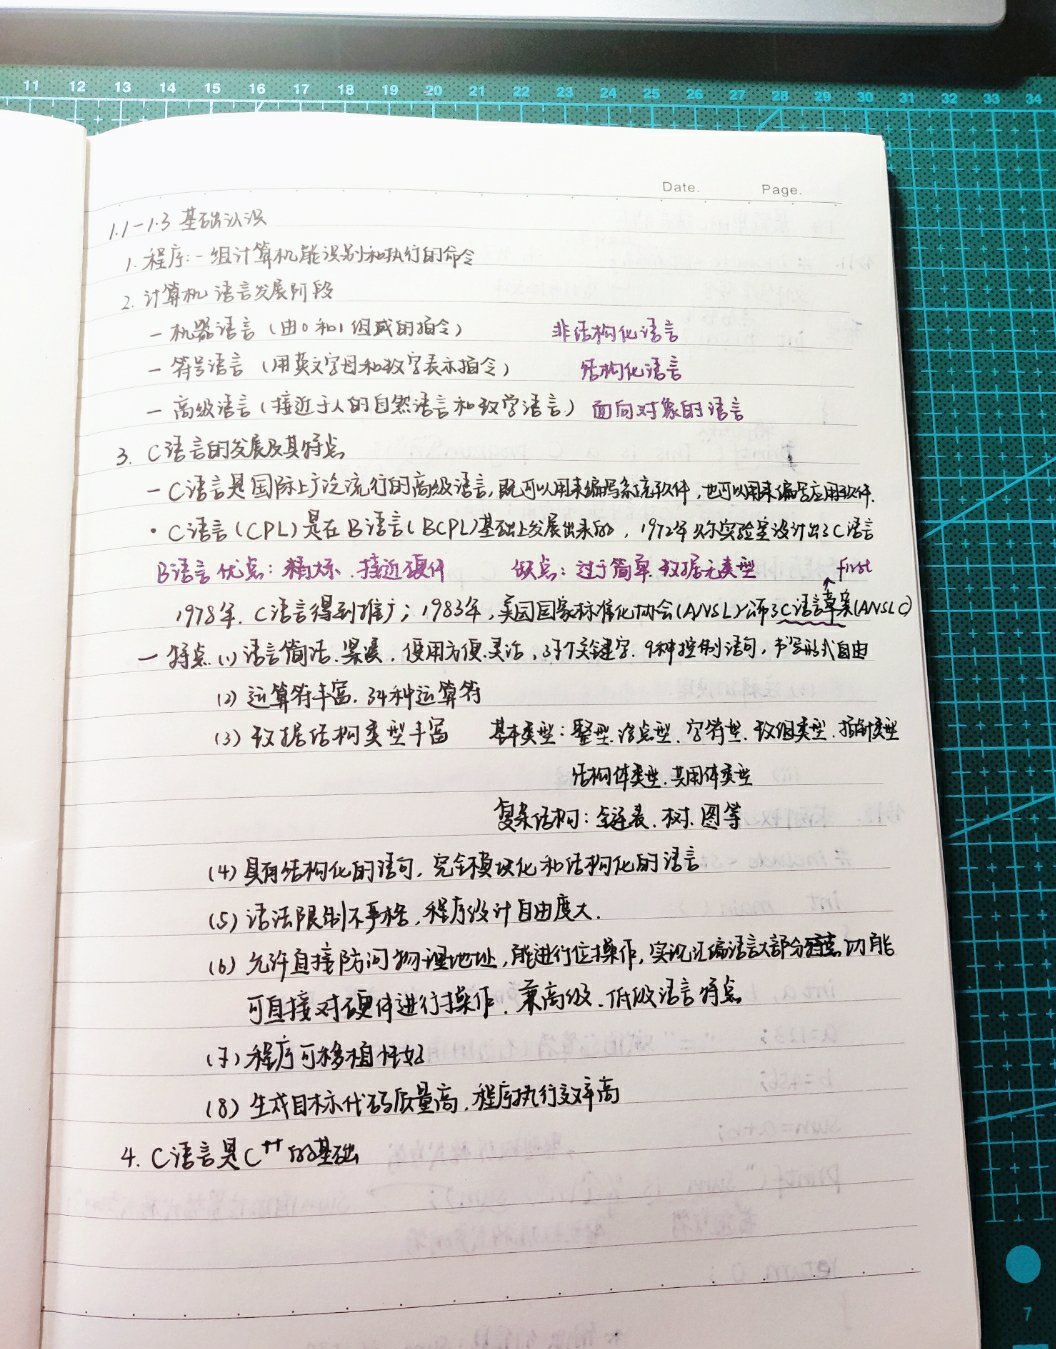 11 12 13 14 15 16 17 18 19 20 21 22 23 24 25 26 27 28 29 30 31 32 33 34
Date. Page.
1.1-1.3 基础认识
1. 程序:一组计算机能识别和执行的命令
2. 计算机语言发展阶段
— 机器语言（由0和1组成的指令） 非结构化语言
— 符号语言（用英文字母和数字表示指令） 结构化语言
— 高级语言（接近于人的自然语言和数学语言） 面向对象的语言
3. C语言的发展及其特点
— C语言是国际上广泛流行的高级语言,既可以用来编写系统软件,也可以用来编写应用软件.
· C语言(CPL)是在B语言(BCPL)基础上发展出来的，1972年贝尔实验室设计出了C语言
B语言优点：精炼、接近硬件 缺点：过于简单.数据无类型 first
1978年，C语言得到推广；1983年,美国国家标准化协会(ANSL)公布了C语言草案(ANSLC)
— 特点.(1)语言简洁.紧凑、使用方便.灵活，37个关键字.9种控制语句，书写形式自由
(2) 运算符丰富.34种运算符
(3) 数据结构类型丰富 基本类型：整型.浮点型.字符型.数组类型.指针类型
结构体类型.共用体类型
复杂结构：链表.树.图等
(4) 具有结构化的语句，完全模块化和结构化的语言
(5) 语法限制不严格，程序设计自由度大.
(6) 允许直接访问物理地址,能进行位操作,实现汇编语言大部分功能
可直接对硬件进行操作、兼高级、低级语言特点
(7) 程序可移植性好
(8) 生成目标代码质量高，程序执行效率高
4. C语言是C++的基础
7